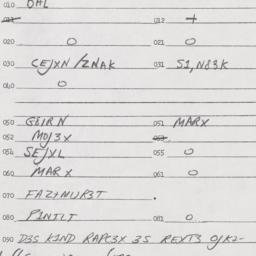 010 OHL
011 012 +
020 O 021 O
030 CEJXN/ZNAK 031 S1,N83K
040 O
050 GEIRN 051 MARX
052 MOJ3X 053
054 SEJXL 055 O
060 MARX 061 O
070 FAZ+NUR3T .
080 P1NTLT 081 O
090 D3S K1ND RAPC3X 3S REXT3 O/K2-